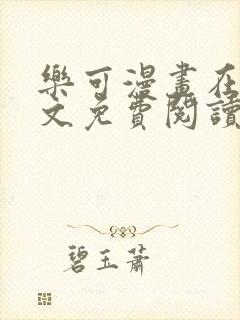 樂可漫畫在
文免費閱讀
碧玉蕭